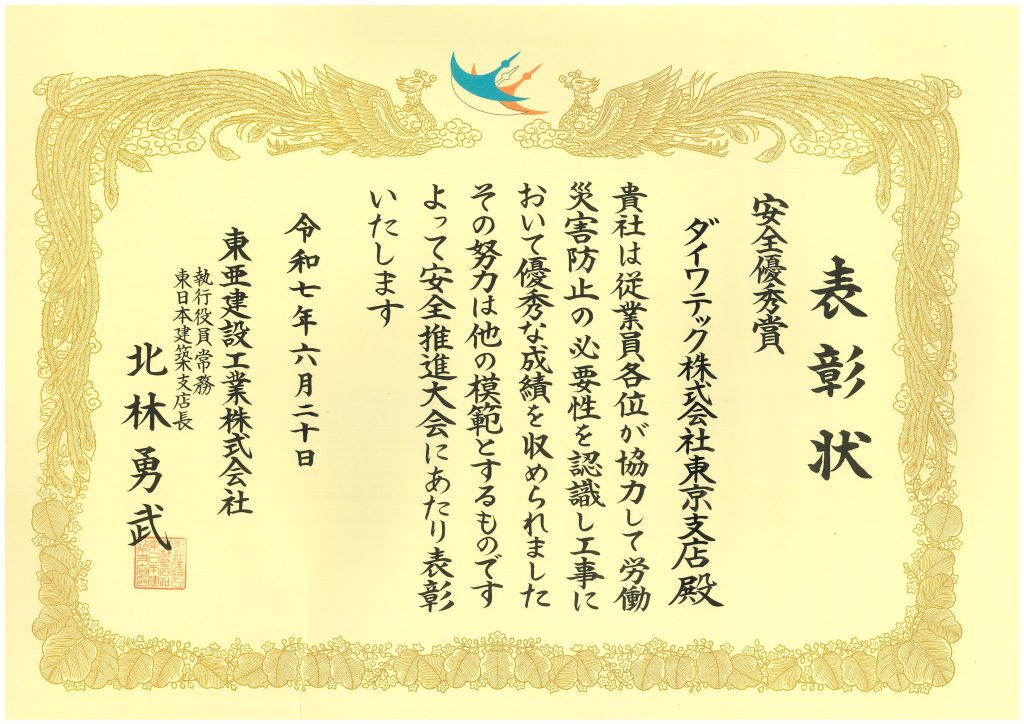 表彰状
安全優秀賞
ダイワテック株式会社東京支店殿
貴社は従業員各位が協力して労働
災害防止の必要性を認識し工事に
おいて優秀な成績を収められました
その努力は他の模範とするものです
よって安全推進大会にあたり表彰
いたします
令和七年六月二十日
東亜建設工業株式会社
執行役員常務
東日本建築支店長
北林勇武